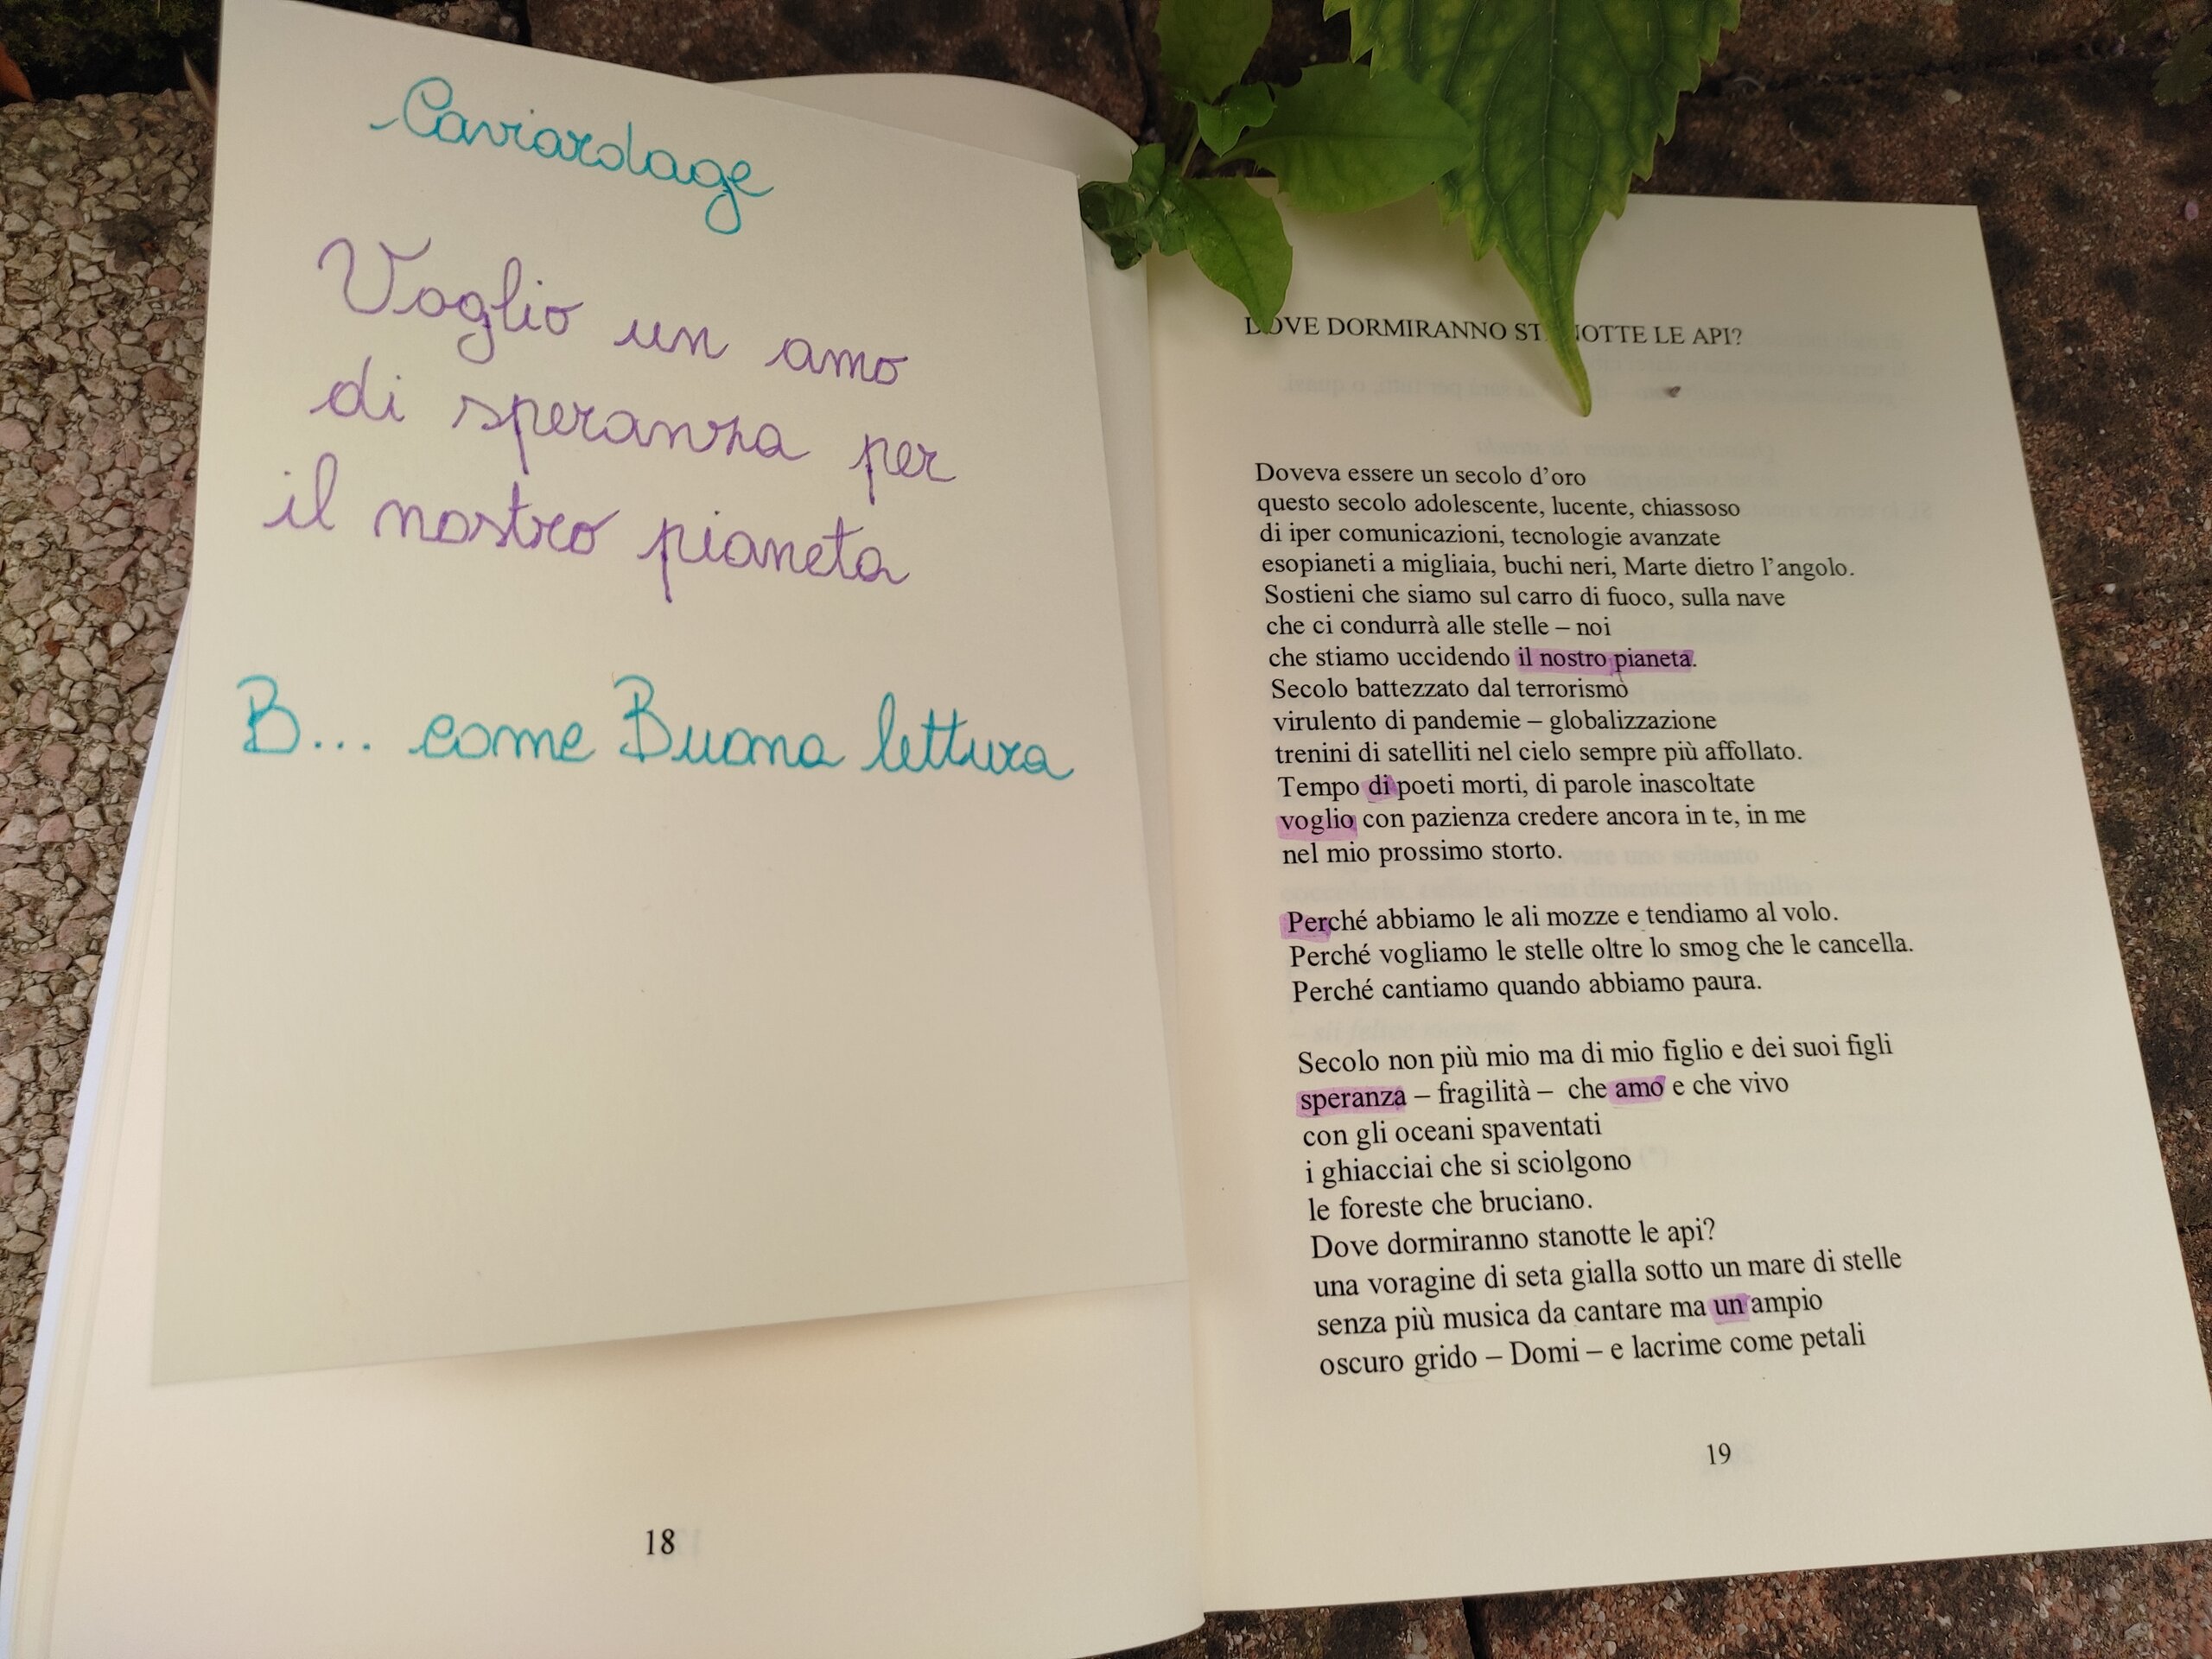 Caviardage
Voglio un amo
di speranza per
il nostro pianeta
B... come Buona lettura
18
DOVE DORMIRANNO STANOTTE LE API?
Doveva essere un secolo d'oro
questo secolo adolescente, lucente, chiassoso
di iper comunicazioni, tecnologie avanzate
esopianeti a migliaia, buchi neri, Marte dietro l'angolo.
Sostieni che siamo sul carro di fuoco, sulla nave
che ci condurrà alle stelle – noi
che stiamo uccidendo il nostro pianeta.
Secolo battezzato dal terrorismo
virulento di pandemie – globalizzazione
trenini di satelliti nel cielo sempre più affollato.
Tempo di poeti morti, di parole inascoltate
voglio con pazienza credere ancora in te, in me
nel mio prossimo storto.
Perché abbiamo le ali mozze e tendiamo al volo.
Perché vogliamo le stelle oltre lo smog che le cancella.
Perché cantiamo quando abbiamo paura.
Secolo non più mio ma di mio figlio e dei suoi figli
speranza – fragilità – che amo e che vivo
con gli oceani spaventati
i ghiacciai che si sciolgono
le foreste che bruciano.
Dove dormiranno stanotte le api?
una voragine di seta gialla sotto un mare di stelle
senza più musica da cantare ma un ampio
oscuro grido – Domi – e lacrime come petali
19